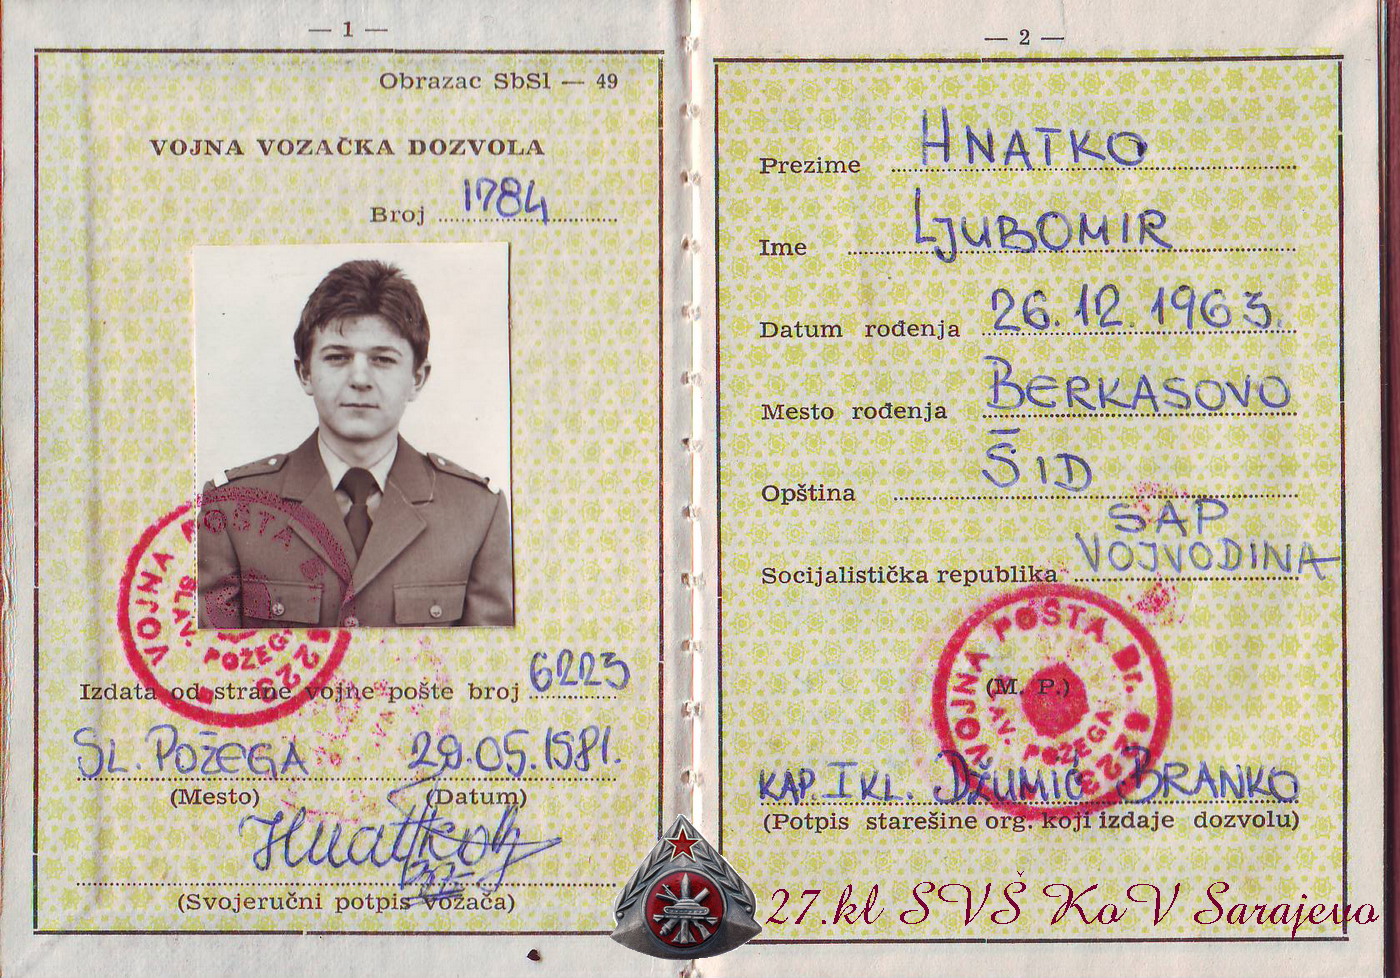 — 1 —
Obrazac SbSl — 49
VOJNA VOZAČKA DOZVOLA
Broj 1784
VOJNA POŠTA
SLAV. POŽEGA
6223
Izdata od strane vojne pošte broj 6223
SL. POŽEGA 29.05.1981.
(Mesto) (Datum)
Hnatko Lj
(Svojeručni potpis vozača)
— 2 —
Prezime HNATKO
Ime LJUBOMIR
Datum rođenja 26.12.1963.
Mesto rođenja BERKASOVO
Opština ŠID
SAP
Socijalistička republika VOJVODINA
VOJNA POŠTA Br. 6223
SLAV. POŽEGA
(M. P.)
KAP. I KL. DŽUMIĆ BRANKO
(Potpis starešine org. koji izdaje dozvolu)
27.kl SVŠ KoV Sarajevo